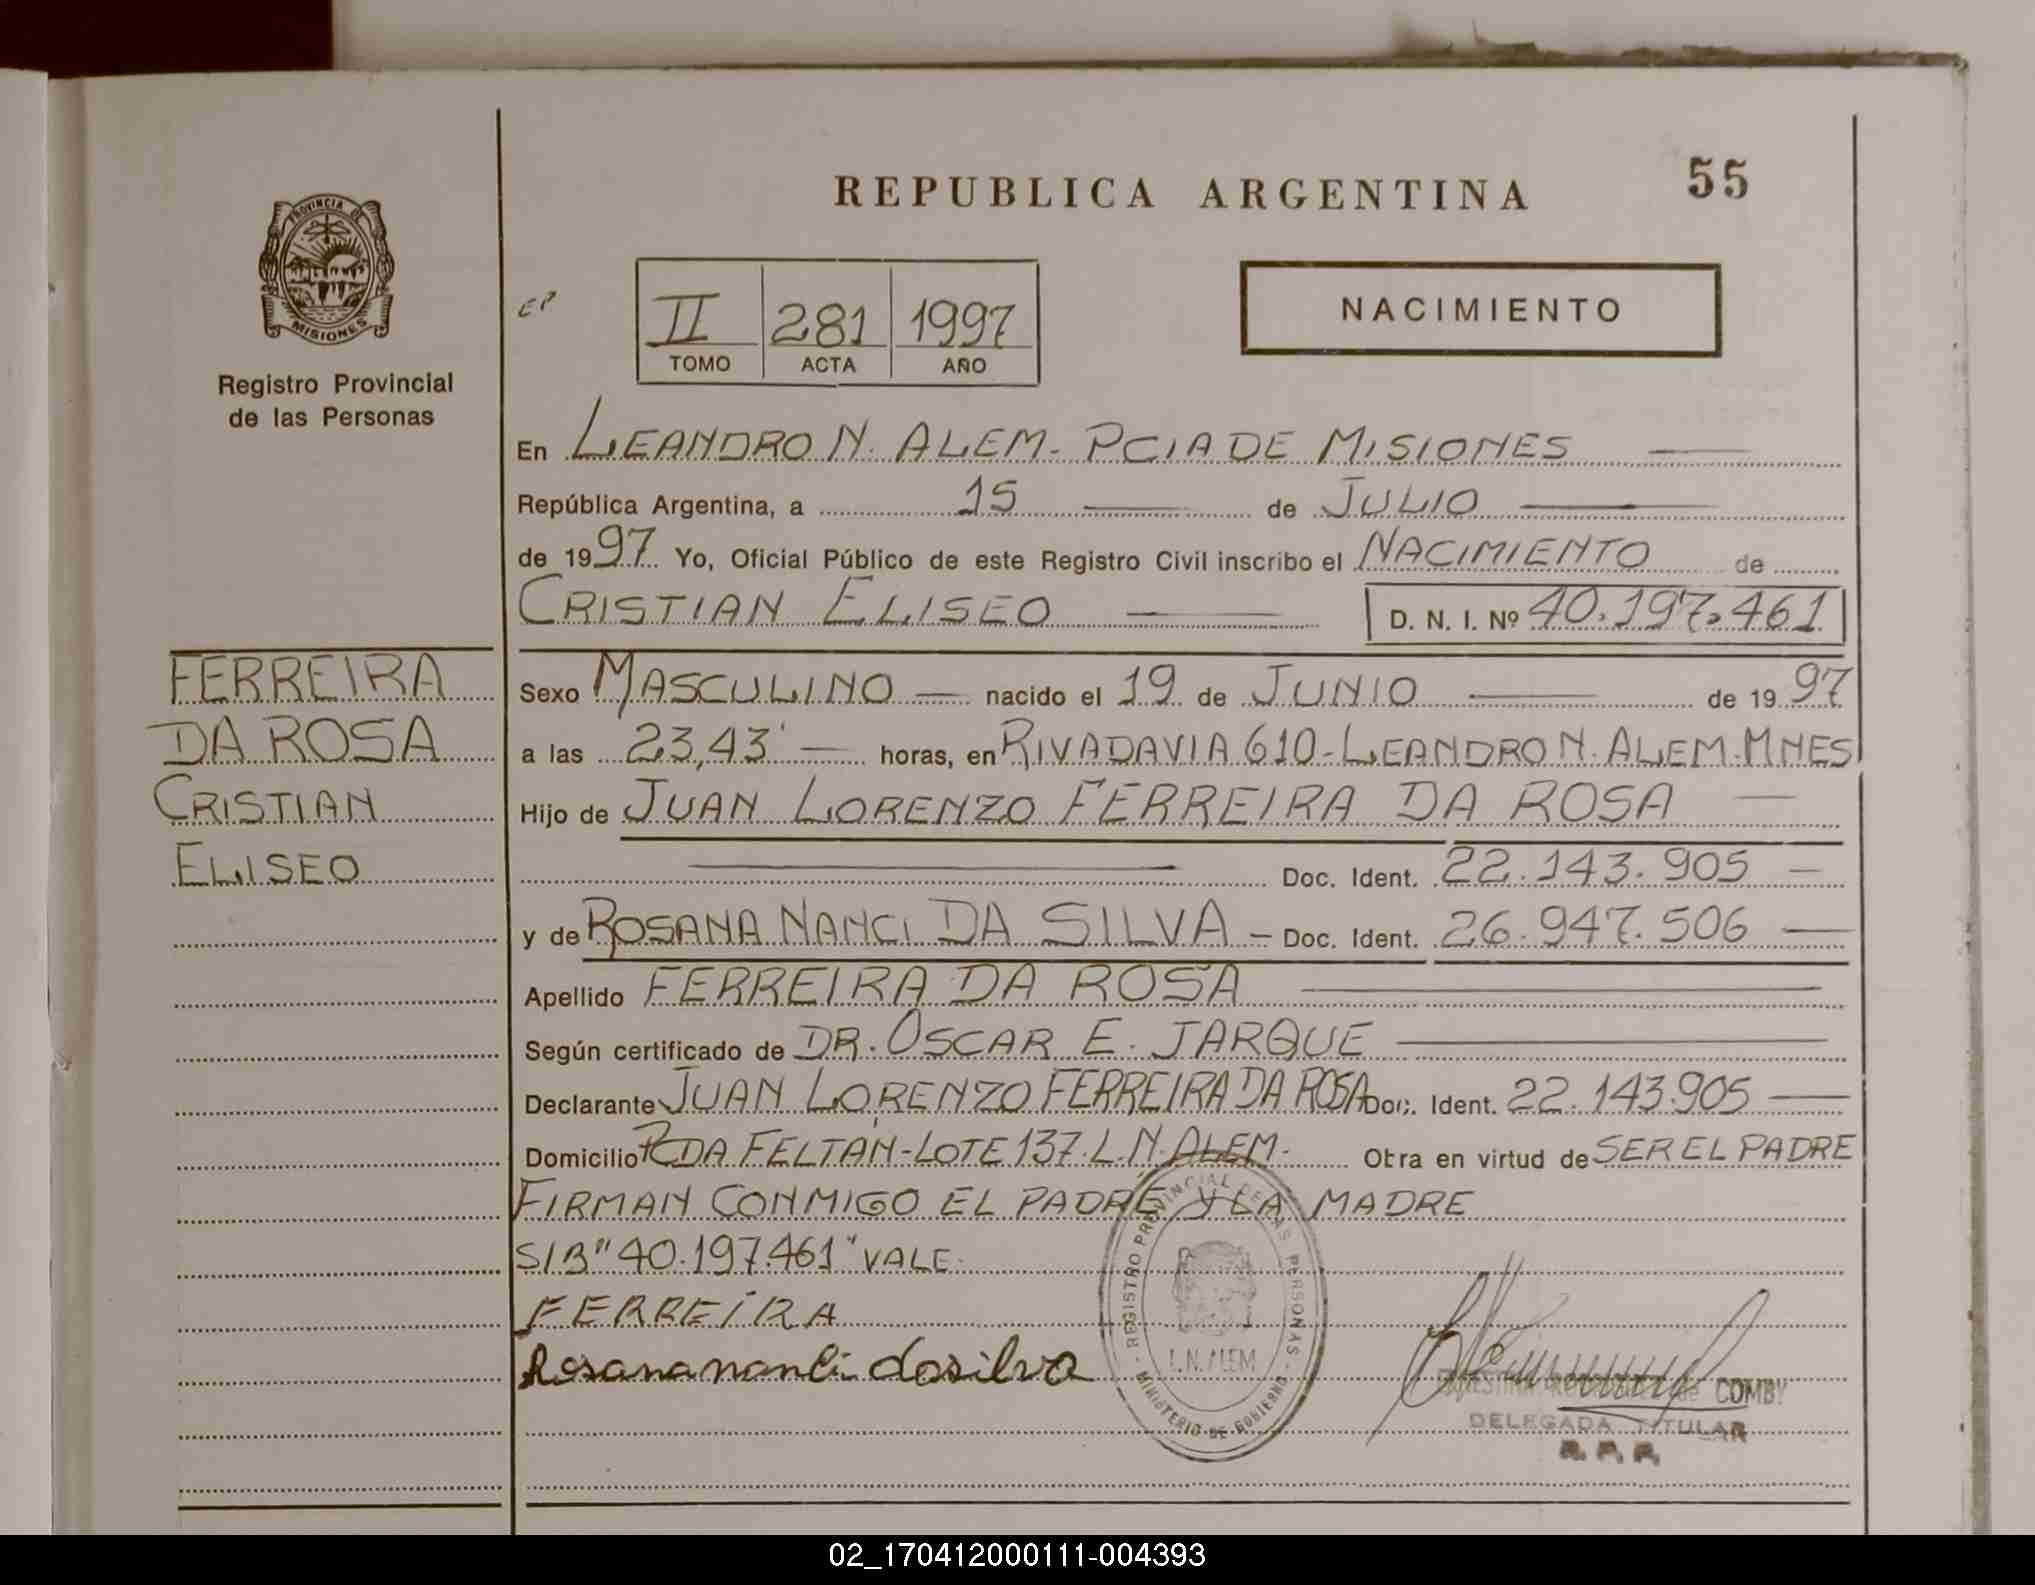 55
REPUBLICA ARGENTINA
PROVINCIA DE
MISIONES
Registro Provincial
de las Personas
EP
II 281 1997
TOMO ACTA AÑO
NACIMIENTO
En LEANDRO N. ALEM - PCIA DE MISIONES
República Argentina, a 15 de JULIO
de 1997 Yo, Oficial Público de este Registro Civil inscribo el NACIMIENTO de
CRISTIAN ELISEO D. N. I. Nº 40.197.461
FERREIRA
DA ROSA
CRISTIAN
ELISEO
Sexo MASCULINO nacido el 19 de JUNIO de 1997
a las 23,43' horas, en RIVADAVIA 610-LEANDRO N. ALEM-MNES
Hijo de JUAN LORENZO FERREIRA DA ROSA
Doc. Ident. 22.143.905
y de ROSANA NANCI DA SILVA - Doc. Ident. 26.947.506
Apellido FERREIRA DA ROSA
Según certificado de DR. OSCAR E. JARQUE
Declarante JUAN LORENZO FERREIRA DA ROSA Doc. Ident. 22.143.905
Domicilio PCDA FELTAN-LOTE 137. L.N. ALEM. Obra en virtud de SER EL PADRE
FIRMAN CONMIGO EL PADRE Y LA MADRE
S/B "40.197.461" VALE.
FERREIRA
Rosana nanci dasilva
REGISTRO PROVINCIAL DE LAS PERSONAS - MINISTERIO DE GOBIERNO -
L.N. ALEM
de COMBY
DELEGADA TITULAR
R. P. P.
02_170412000111-004393